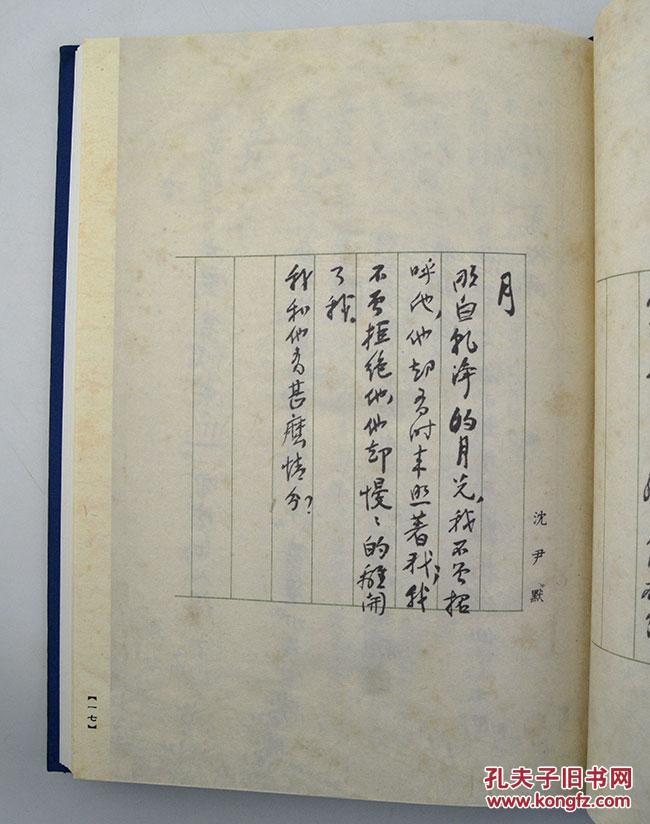 沈尹默
月
明白乾淨的月光，我不曾招
呼他，他却有时来照著我；我
不曾拒絶他，他却慢〻的離開
了我。
我和他有甚麽情分？
【一七】
孔夫子旧书网
www.kongfz.com